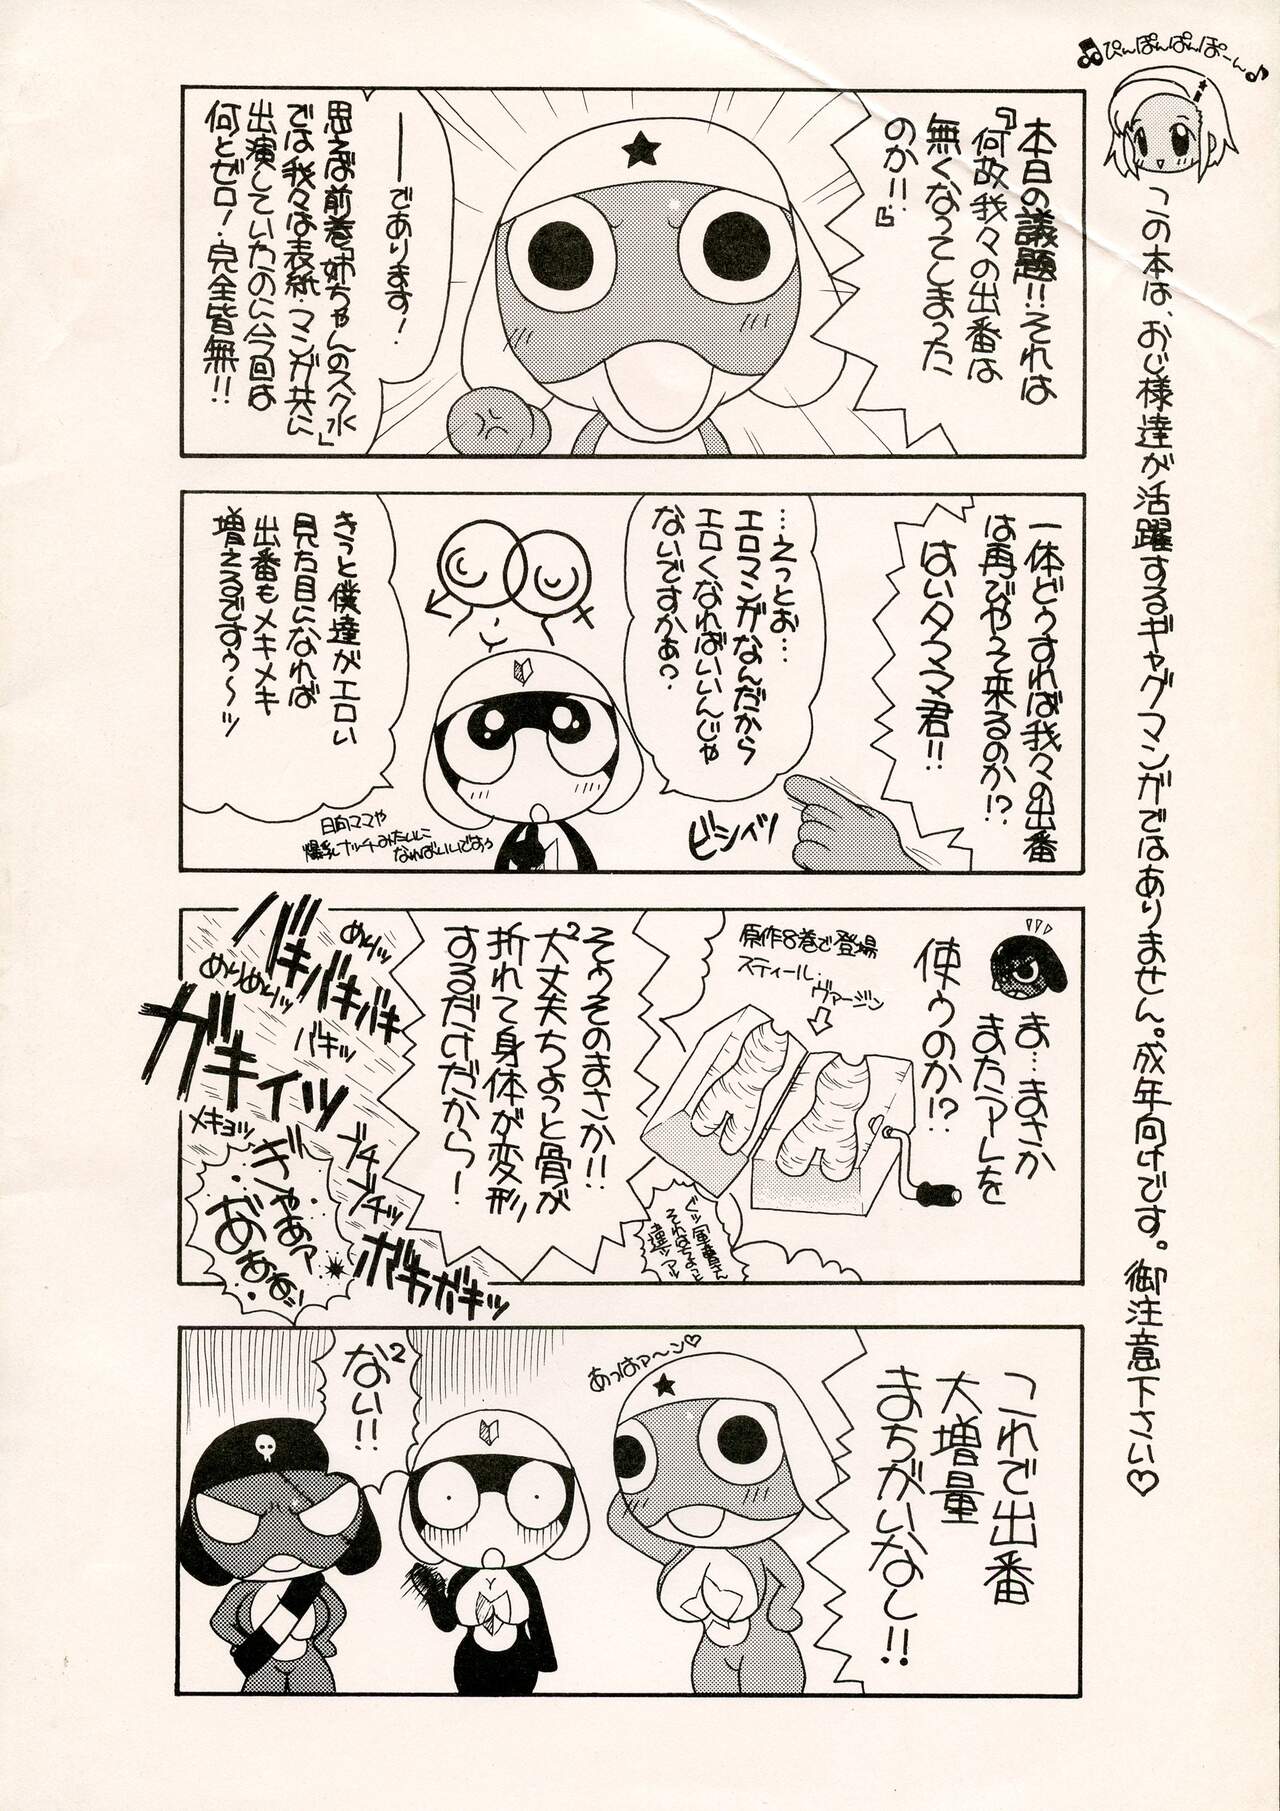 ぴんぽんぱんぽーん
この本は、おじ様達が活躍するギャグマンガではありません。成年向けです。御注意下さい♡
本日の議題!!それは
『何故我々の出番は
無くなってしまった
のか!!』
――であります!
思えば前巻「姉ちゃんのスク水」
では我々は表紙・マンガ共に
出演していたのに今回は
何とゼロ!完全皆無!!
一体どぅすれば我々の出番
は再びやって来るのか!?
はいタママ君!!
ビシィッ
…えっとぉ…
エロマンガなんだから
エロくなればいいんじゃ
ないですかぁ?
きっと僕達がエロい
見た目になれば
出番もメキメキ
増えるですぅ〜ッ
日向ママや
爆乳ナッチーみたいに
なればいいですぅ
ま…まさか
またアレを
使ぅのか!?
原作8巻で登場
スティール・
ヴァージン
ぐッ軍曹さん
それはちょっと
違ッアッ
そぅそのまさか!!
大²丈夫ちょっと骨が
折れて身体が変形
するだけだから!
バキ
バキバキ
めりッ
めりめりッ
バキッ
ガキイッ
メキョッ
ブチ
ブチッ
ぎゃあァ
あああッ
ボキガキッ
これで出番
大増量
まちがいなし!!
あっはァ〜ン♡
な²い!!